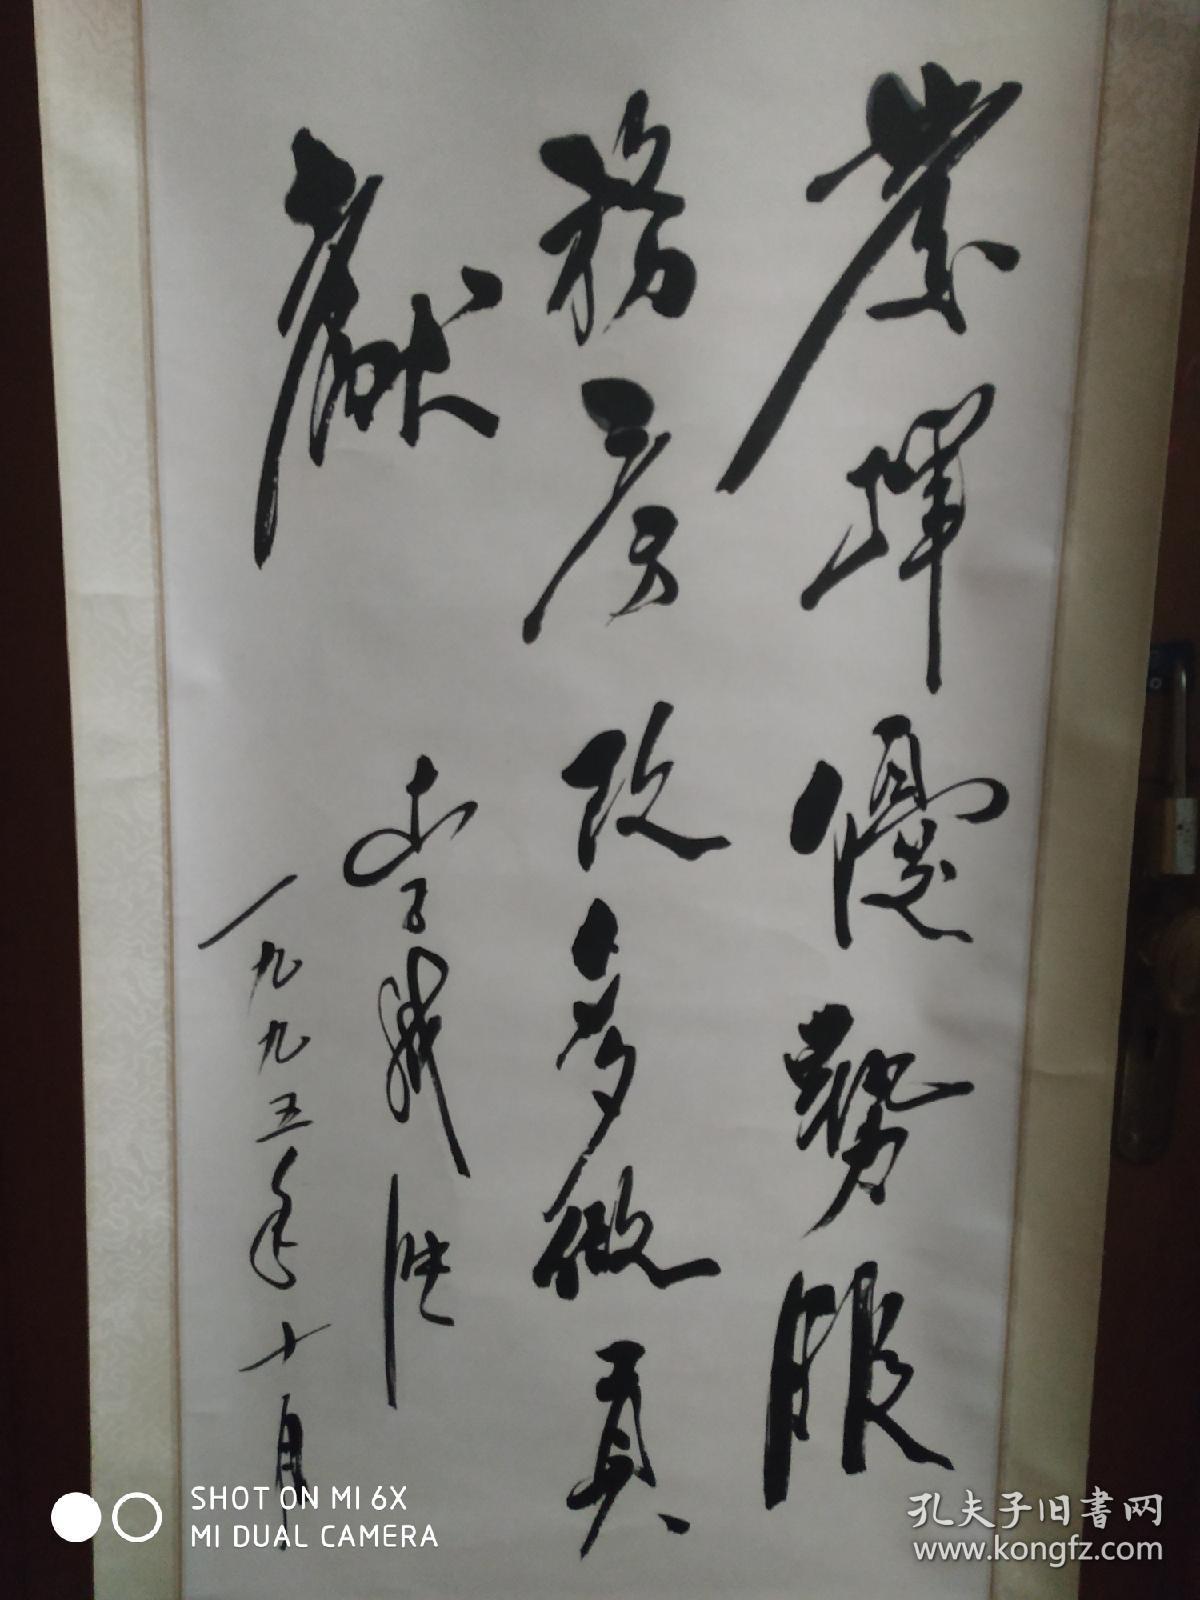 發揮優勢服
務房改多做貢
獻
李
一九九五年十月
SHOT ON MI 6X
MI DUAL CAMERA
孔夫子旧書网
www.kongfz.com